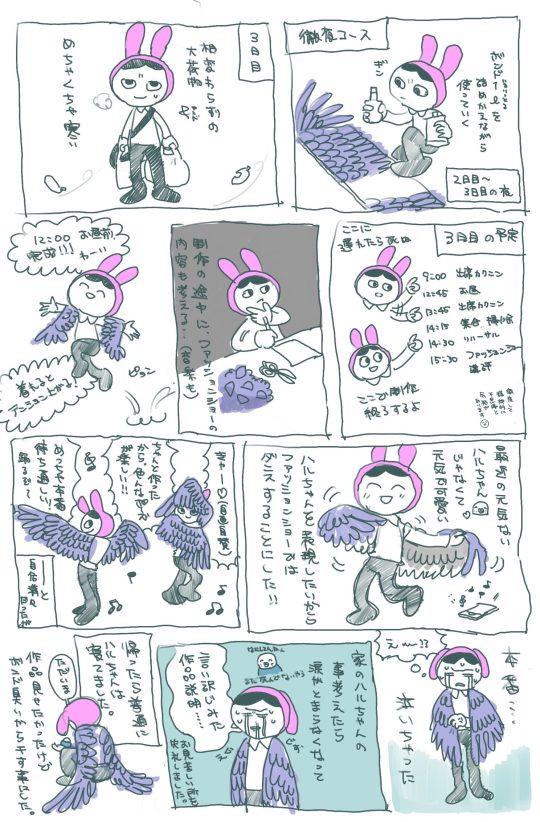 徹夜コース
ボンドを
詰めかえながら
使っていく
ギン
2日目〜
3日目の夜
3日目
相変わらずの
大荷物
めちゃくちゃ寒い
3日目の予定
ここに
遅れたら死ぬ
9:00 出席カクニン
12:45 お昼
13:45 出席カクニン
14:15 集合 撮影
14:30 リハーサル
15:30 ファッションショー
講評
ここで制作
終了するよ
制作の途中に、ファッションショーの
内容も考える…(音楽も)
12:00 お昼前
完成!!!
わーい
着ると
テンション上がる
ピョン
最近の元気ない
ハルちゃん
じゃなくて
元気で可愛い
ハルちゃんを表現したいから
ファッションショーでは
ダンスすることにした!!
キャー♡(自画自賛)
ちゃんと作った
から色んなポーズが
楽しい!!
めっちゃ本番
待ち遠しい!
踊るぞ〜
ーと
自信満々
だったが
本番…
えー!?
泣いちゃった
家のハルちゃんの
事考えたら
涙がとまらなくなって
言い訳じみた
作品説明……
お見苦しい所を
失礼しました。
帰ったら普通に
ハルちゃんは
寝てました。
ただいま
作品見せたかったけど
ボンド臭いから干す事にした。